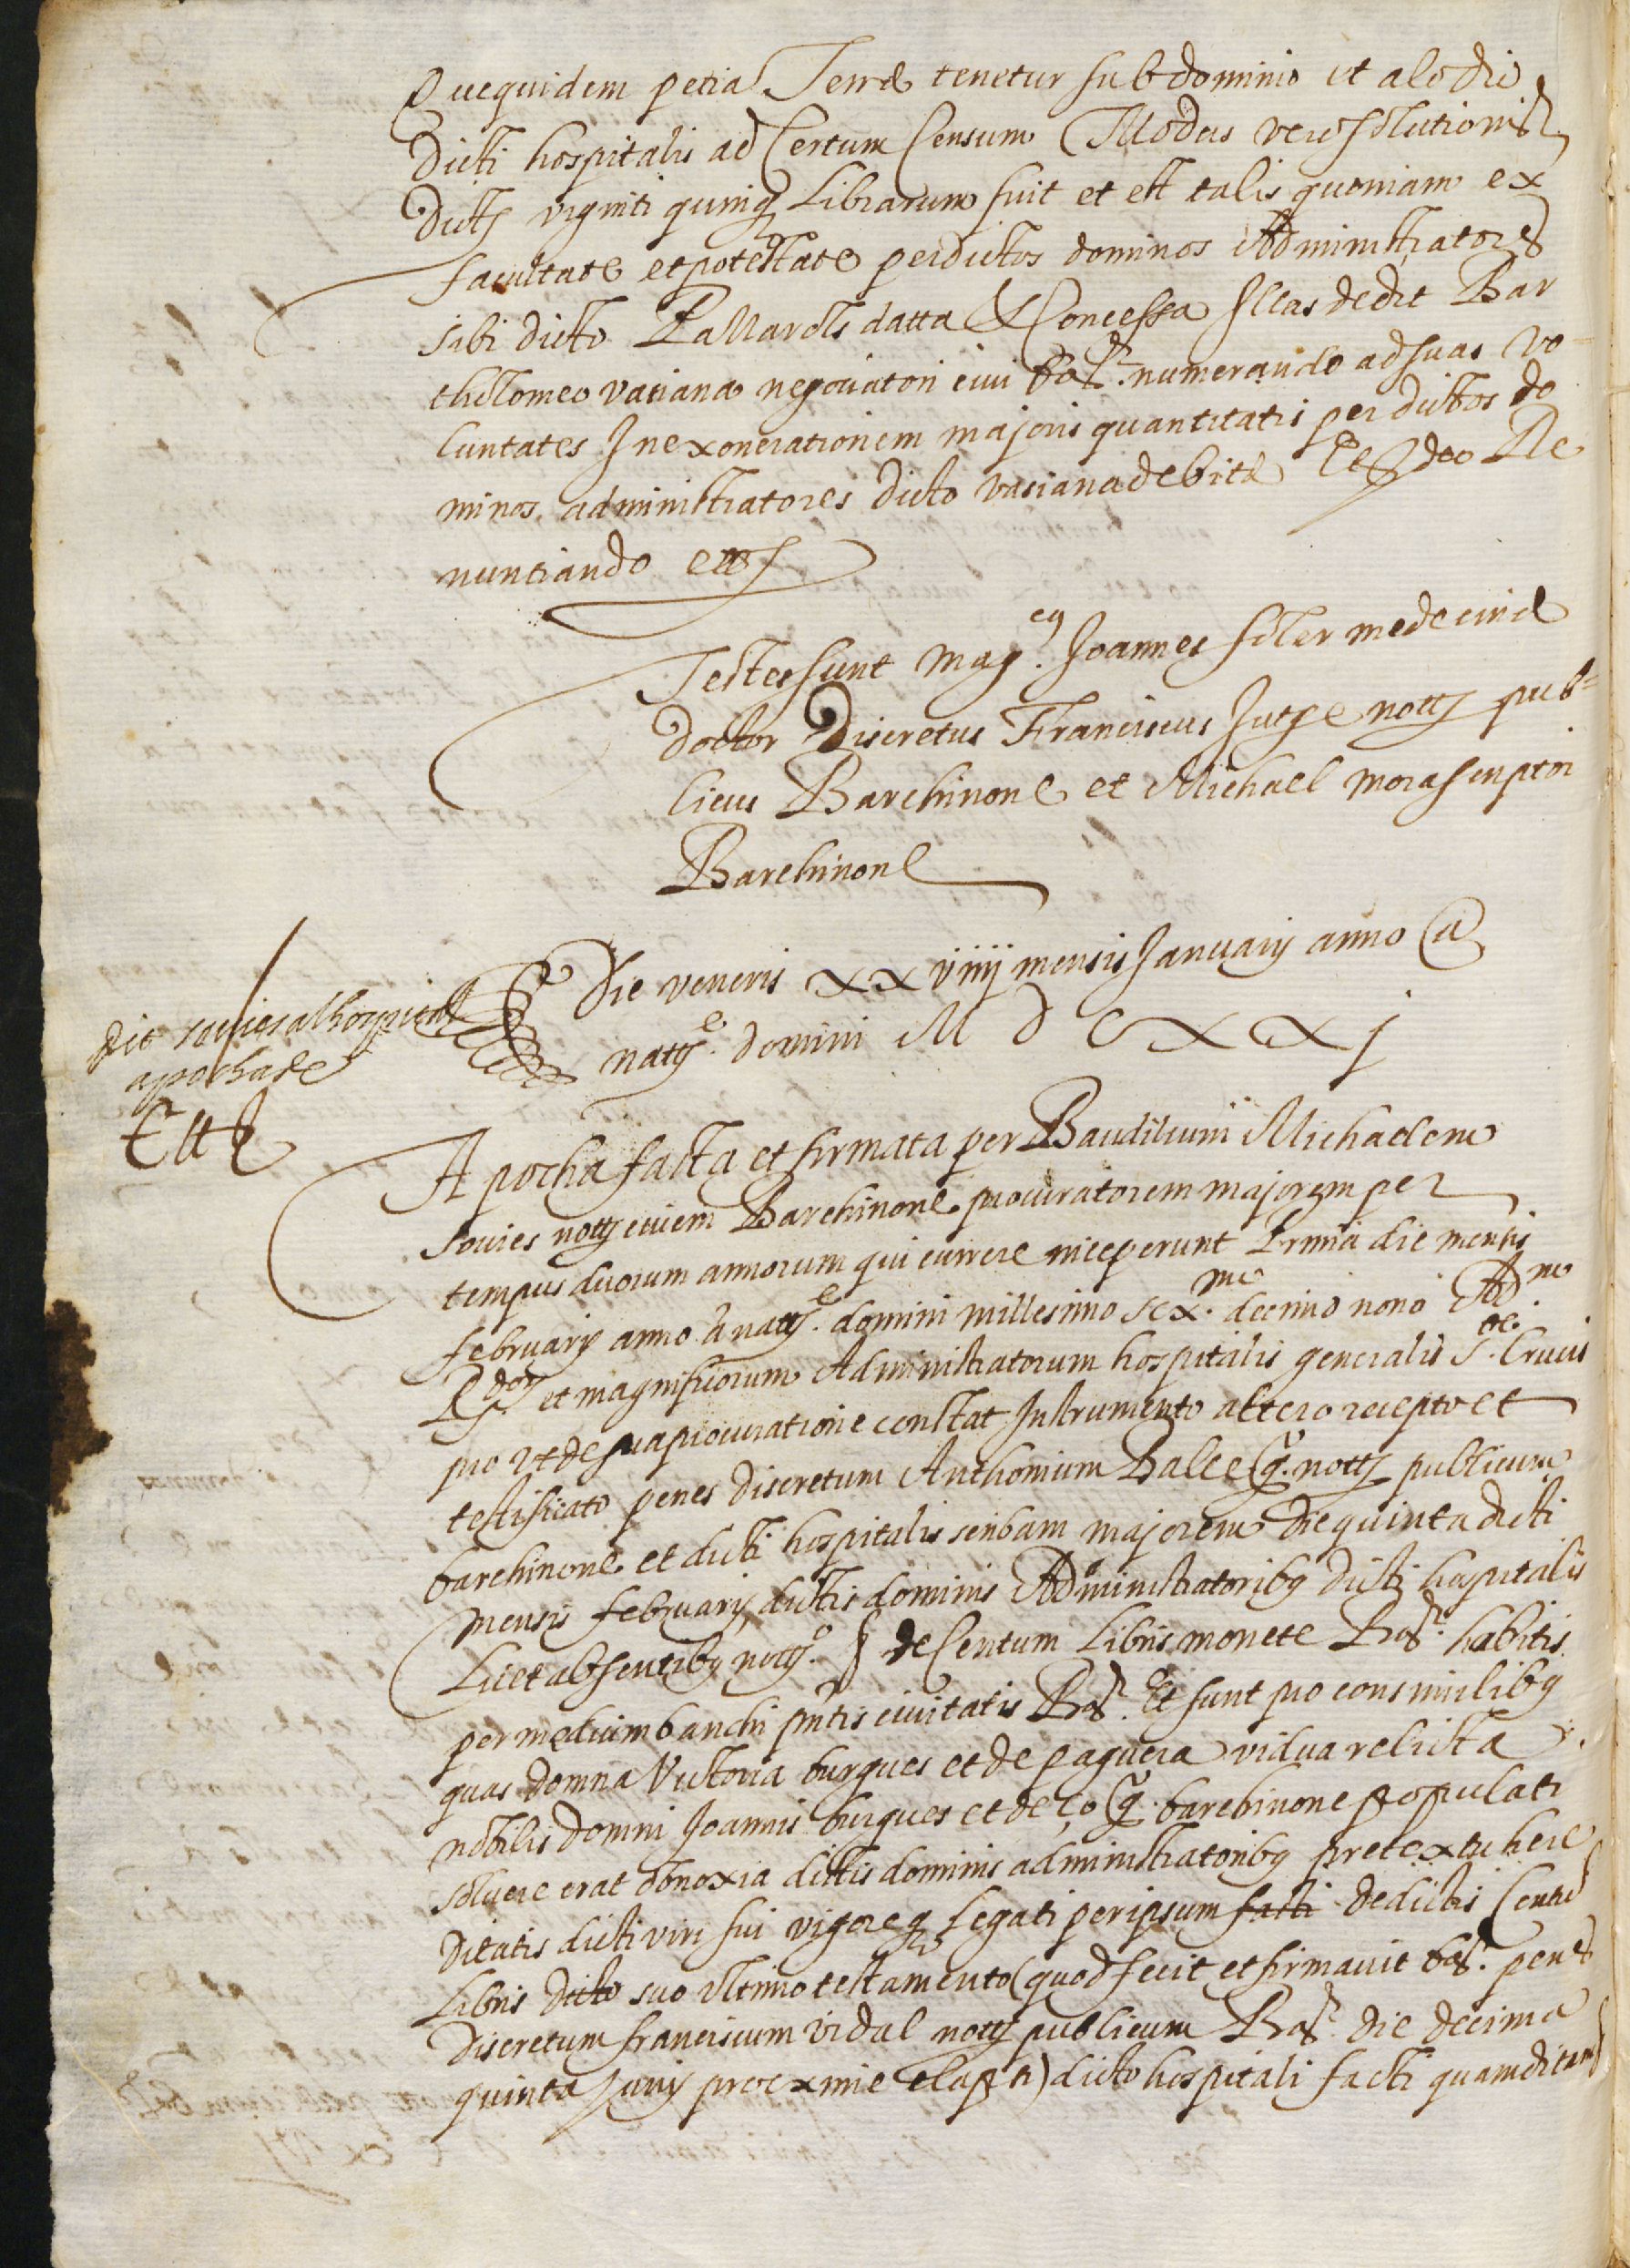 Quequidem petia Terrę tenetur sub dominio et alodio
Dicti hospitalis ad Certum Censum Modus vero solutionis
Dictȝ viginti quinqꝫ Librarum fuit et est talis quoniam ex
facultate et potestate per dictos dominos Administratores
sibi dicto Pallarols datta & Concessa Illas dedit Bar
tholomeo variana negotiatori civi Barꝫ. numerando ad suas vo
luntates In exonerationem majoris quantitatis per dictos do
minos administratores dicto variana debitę Et Ideo Re
nuntiando ettȝ
Testes sunt mag.cꝫ Joannes soler medecinę
doctor Discretus Franciscus Jutge nottȝ pub=
licus Barchinonę et Michael mora scriptor
Barchinonę
Die veneris xxviiij mensis Januarij anno a
natȝ.e domini M D C x x j
dit sovies al hospital
apocha de
C ll
Apocha facta et firmata per Baudilium Michaelem
Sovies nottȝ civem Barchinonę procuratorem majorem per
tempus duorum annorum qui currere inceperunt Prima die mensis
februarij anno à natȝ.e domini millesimo sex.mo decimo nono Adm.
Rdorȝ et magnificorum Administratorum hospitalis generalis S.te Crucis
pro ut de sua procuratione constat Instrumento altero recepto et
testificato penes discretum Anthonium Balle q̊. nottȝ publicum
barchinonę et dicti hospitalis scribam majorem die quinta dicti
mensis februarij dictis dominis Administratoribꝫ dicti hospitalis
Licet absentibꝫ nottȝ.o de Centum Libris monete Barꝫ. habitis
per medium banchi pntis civitatis Barꝫ. Et sunt pro consimilibꝫ
quas domna Victoria burgues et de paguera vidua relicta
nobilis domni Joannis burgues et de ço q̊. barchinone populati
solvere erat obnoxia dictis dominis administratoribꝫ pretextu here
ditatis dicti viri sui vigoreqꝫ Legati per ipsum facti de dictis Centū
Libris dicto suo ultimo testamento (quod fecit et firmavit barꝫ. penes
discretum franciscum vidal nottȝ publicum Barꝫ. die decima
quinta Junij proxime elapsi) dicto hospitali facti quamditam